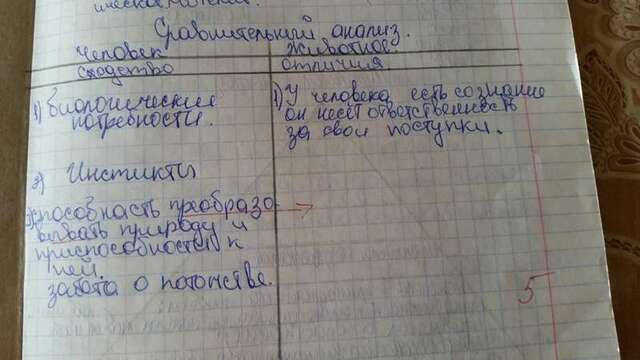 Сравнительный анализ.
Человек Животное
Сходство Отличия
1) Биологические
потребности.
1) У человека есть сознание
он несёт ответственность
за свои поступки.
2) Инстикты
3) способность преобразо-
вывать природу и
приспособиться к
ней.
забота о потомстве.
5